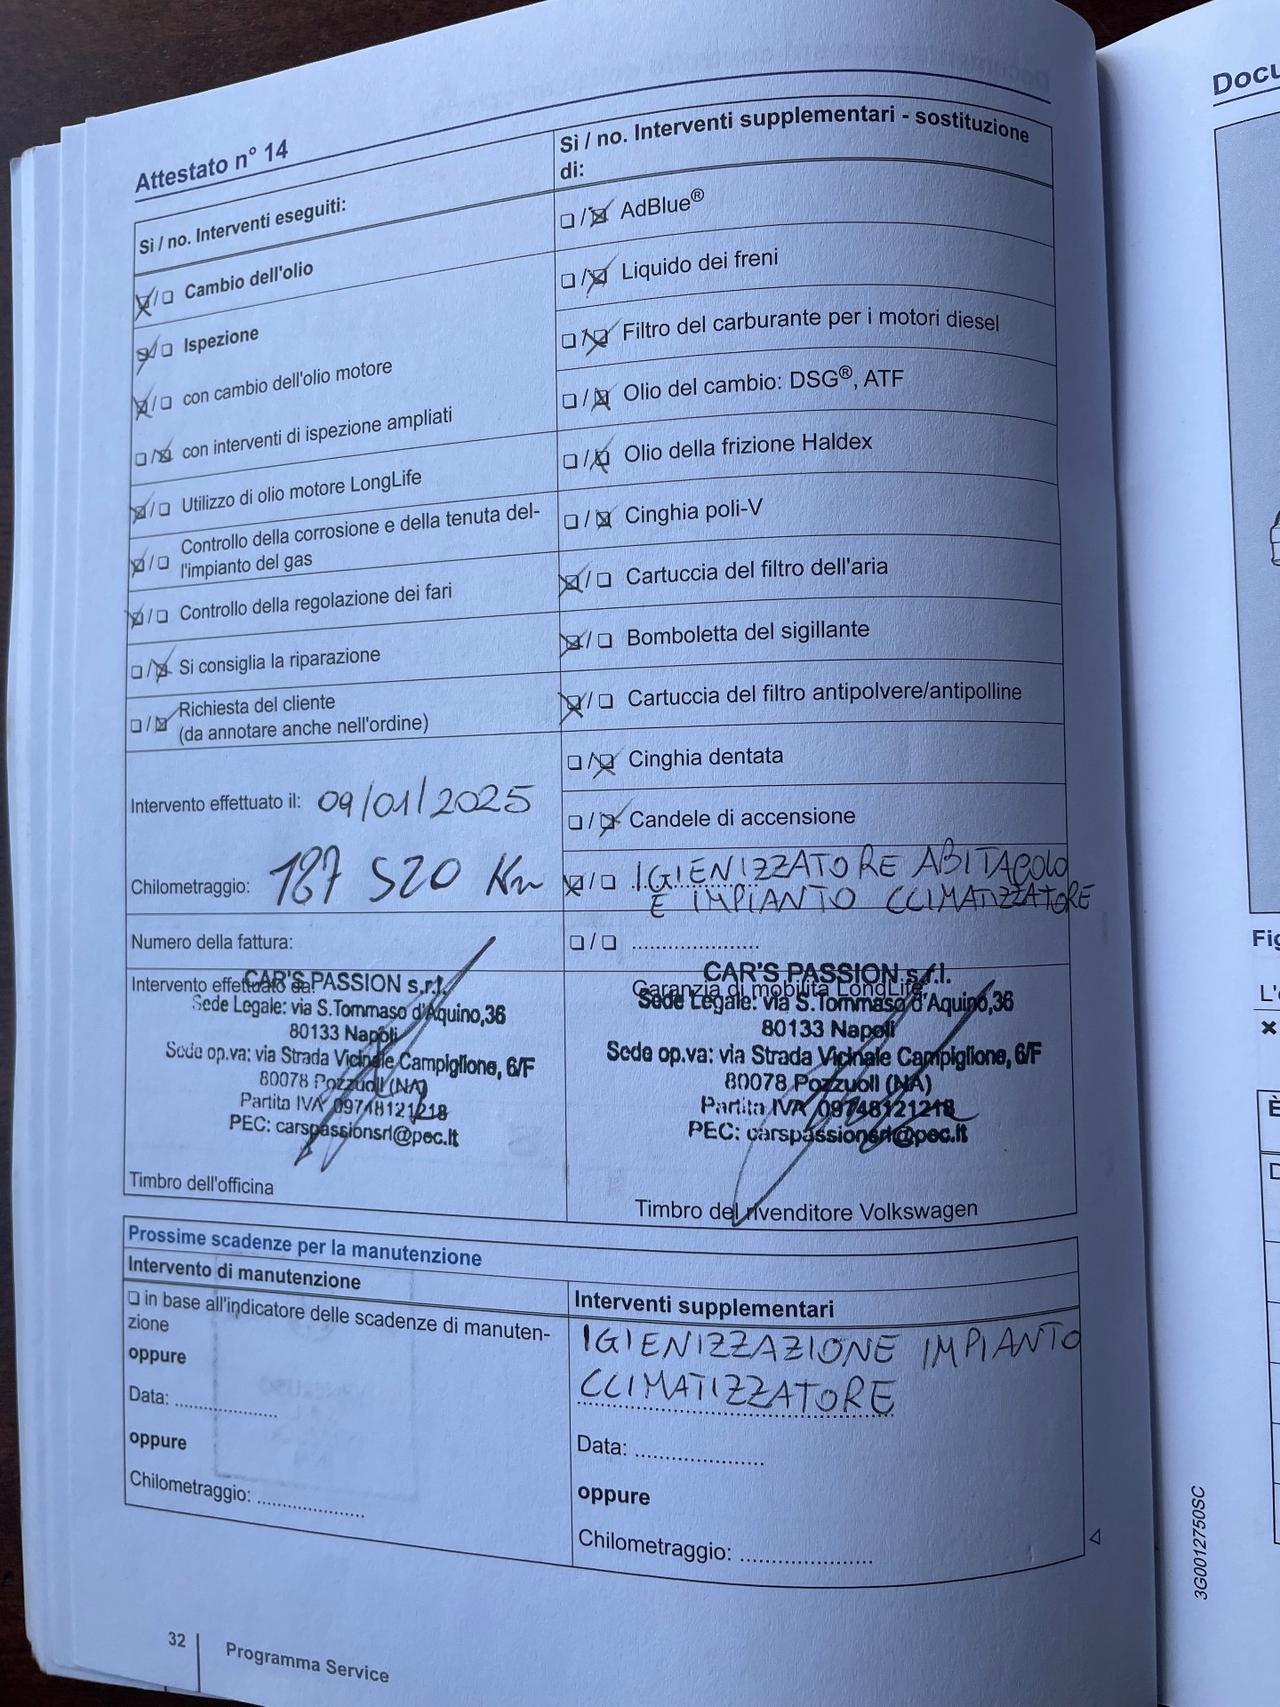 Attestato n° 14
Sì / no. Interventi eseguiti:
☒/☐ Cambio dell'olio
☒/☐ Ispezione
☒/☐ con cambio dell'olio motore
☐/☒ con interventi di ispezione ampliati
☒/☐ Utilizzo di olio motore LongLife
☒/☐ Controllo della corrosione e della tenuta del-
l'impianto del gas
☒/☐ Controllo della regolazione dei fari
☐/☒ Si consiglia la riparazione
☐/☒ Richiesta del cliente
(da annotare anche nell'ordine)
Intervento effettuato il: 09/01/2025
Chilometraggio: 187 520 Km
Numero della fattura:
Intervento effettuato da:
CAR'S PASSION s.r.l.
Sede Legale: via S.Tommaso d'Aquino,36
80133 Napoli
Sede op.va: via Strada Vicinale Campiglione, 6/F
80078 Pozzuoli (NA)
Partita IVA 09748121218
PEC: carspassionsrl@pec.it
Timbro dell'officina
Sì / no. Interventi supplementari - sostituzione
di:
☐/☒ AdBlue®
☐/☒ Liquido dei freni
☐/☒ Filtro del carburante per i motori diesel
☐/☒ Olio del cambio: DSG®, ATF
☐/☒ Olio della frizione Haldex
☐/☒ Cinghia poli-V
☒/☐ Cartuccia del filtro dell'aria
☒/☐ Bomboletta del sigillante
☒/☐ Cartuccia del filtro antipolvere/antipolline
☐/☒ Cinghia dentata
☐/☒ Candele di accensione
☒/☐ IGIENIZZATORE ABITACOLO
E IMPIANTO CLIMATIZZATORE
☐/☐ ....................
Garanzia di mobilità LondLife
CAR'S PASSION s.r.l.
Sede Legale: via S.Tommaso d'Aquino,36
80133 Napoli
Sede op.va: via Strada Vicinale Campiglione, 6/F
80078 Pozzuoli (NA)
Partita IVA 09748121218
PEC: carspassionsrl@pec.it
Timbro del rivenditore Volkswagen
Prossime scadenze per la manutenzione
Intervento di manutenzione
☐ in base all'indicatore delle scadenze di manuten-
zione
oppure
Data: ....................
oppure
Chilometraggio: ....................
Interventi supplementari
IGIENIZZAZIONE IMPIANTO
CLIMATIZZATORE
Data: ....................
oppure
Chilometraggio: ....................
32
Programma Service
3G0012750SC
Docu
Fig
L'